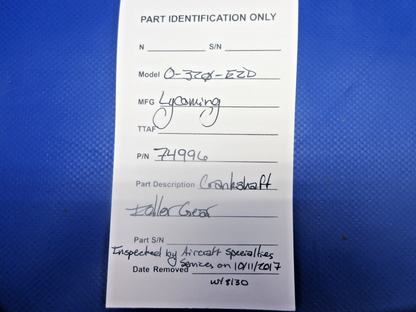 PART IDENTIFICATION ONLY
N S/N
Model O-320-E2D
MFG Lycoming
TTAF
P/N 74996
Part Description Crankshaft
Idler Gear
Part S/N
Inspected by Aircraft Specialties
Services on 10/11/2017
Date Removed
w/8130